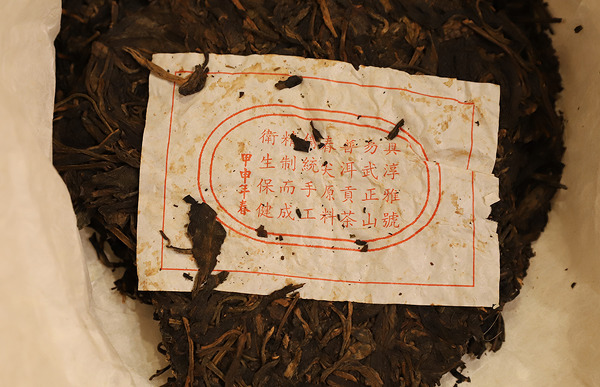 真淳雅號
易武正山
寧洱貢茶
春尖原料
統手工
精制而成
衛生保健
甲申年春